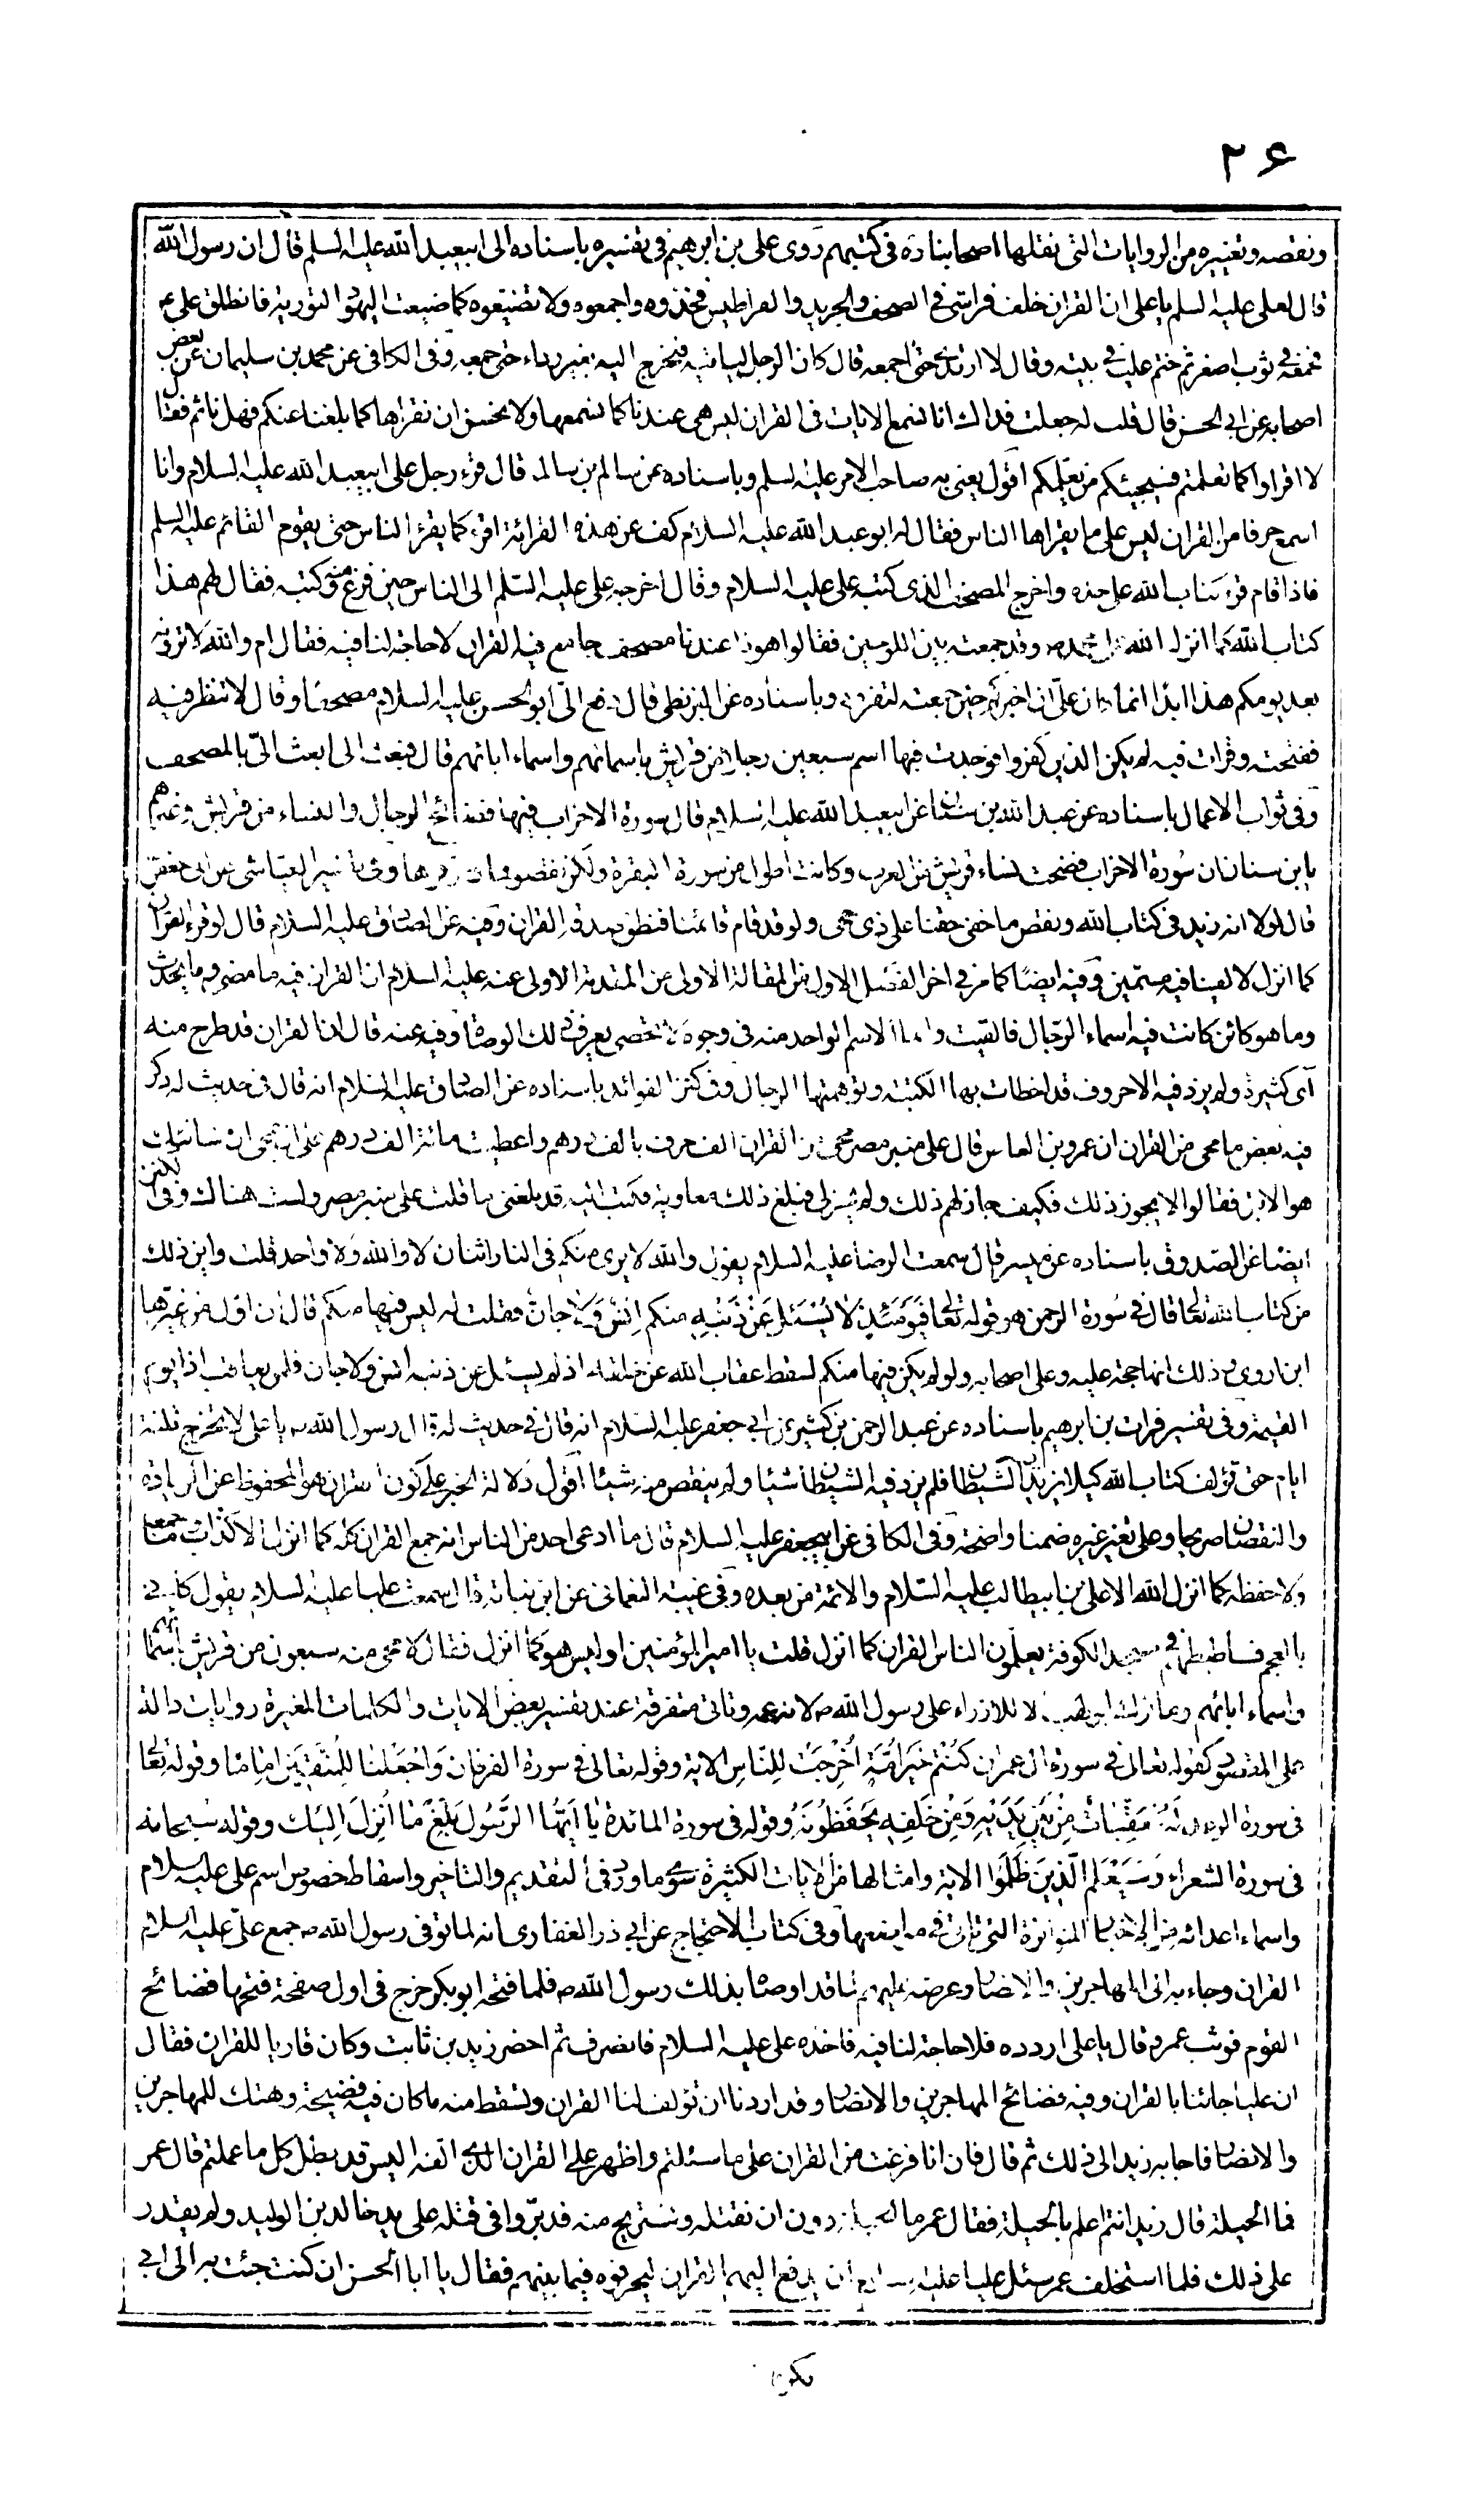 ٢۶
ونقصه وتغييره من الروايات التى نقلها اصحابنا ره فى كتبهم روى على بن ابرهيم فى تفسيره باسناده الى ابيعبد الله عليه السلم قال ان رسول الله
قال لعلى عليه السلم يا على ان القران خلف فراشى فى الصحف والحرير والقراطيس فخذوه واجمعوه ولا تضيعوه كما ضيعت اليهود التورية فانطلق على ع
فجمعه فى ثوب اصفر ثم ختم عليه فى بيته وقال لا ارتدى حتى اجمعه قال كان الرجل لياتيه فيخرج اليه بغير رداء حتى جمعه وفى الكافى عن محمد بن سليمان عن بعض
اصحابه عن ابى الحسن قال قلت له جعلت فداك انا نسمع الايات فى القران ليس هى عندنا كما نسمعها ولا نحسن ان نقراها كما بلغنا عنكم فهل ناثم فقال
لا اقراوا كما تعلمتم فسيجيئكم من يعلمكم اقول يعنى به صاحب الامر عليه السلم وباسناده عن سالم بن سالم قال قرء رجل على ابيعبد الله عليه السلام وانا
اسمع حرفا من القران ليس على ما يقراها الناس فقال له ابو عبد الله عليه السلام كف عن هذه القرائة اقرء كما يقرء الناس حتى يقوم القائم عليه السلم
فاذا قام قرء كتاب الله على حده واخرج المصحف الذى كتبه على عليه السلام وقال اخرجه على عليه السلم الى الناس حين فرغ منه وكتبه فقال لهم هذا
كتاب الله كما انزل الله على محمد ص وقد جمعته بين اللوحين فقالوا هوذا عندنا مصحف جامع فيه القران لا حاجة لنا فيه فقال ام والله لا ترونه
بعد يومكم هذا ابدا انما كان على ان اخبركم حين جمعته لتقرؤه وباسناده عن البزنطى قال دفع الى ابو الحسن عليه السلام مصحفا وقال لا تنظر فيه
ففتحته وقرات فيه لم يكن الذين كفروا فوجدت فيها اسم سبعين رجلا من قريش باسمائهم واسماء ابائهم قال فبعث الى ابعث الى بالمصحف
وفى ثواب الاعمال باسناده عن عبد الله بن سنان عن ابيعبد الله عليه السلام قال سورة الاحزاب فيها فضائح الرجال والنساء من قريش وغيرهم
يابن سنان ان سورة الاحزاب فضحت نساء قريش من العرب وكانت اطول من سورة البقرة ولكن نقصوها وحرفوها وفى تفسير العياشى عن ابى جعفر ع
قال لولا انه زيد فى كتاب الله ونقص ما خفى حقنا على ذى حجى ولو قد قام قائمنا فنطق صدقه القران وفيه عن الصادق عليه السلام قال لو قرء القران
كما انزل لالفينا فيه مسمين وفيه ايضا كما مر فى اخر الفصل الاول من المقالة الاولى من المقدمة الاولى عنه عليه السلام ان القران فيه ما مضى وما يحدث
وما هو كائن كانت فيه اسماء الرجال فالقيت وانما الاسم الواحد منه فى وجوه لا تحصى يعرف ذلك الوصاة وفيه عنه قال ان القران قد طرح منه
آى كثيرة ولم يزد فيه الا حروف قد اخطات بها الكتبة وتوهمتها الرجال وفى كنز الفوائد باسناده عن الصادق عليه السلام انه قال فى حديث له ذكر
فيه بعض ما محى من القران ان عمرو بن العاس قال على منبر مصر محى من القران الف حرف بالف درهم واعطيت مائتا الف درهم على ان يمحى ان شانئك
هو الابتر فقالوا لا يجوز ذلك فكيف جاز لهم ذلك ولم يجز لى فبلغ ذلك معاوية فكتب اليه قد بلغنى ما قلت على منبر مصر ولست هناك وفى الكنز
ايضا عن الصدوق باسناده عن ميسر قال سمعت الرضا عليه السلام يقول والله لا يرى منكم فى النار اثنان لا والله ولا واحد قلت واين ذلك
من كتاب الله تعالى قال فى سورة الرحمن هو قوله تعالى فيومئذ لا يسئل عن ذنبه منكم انس ولا جان فقلت له ليس فيها منكم قال ان اول من غيرها
ابن اروى وذلك انها حجة عليه وعلى اصحابه ولو لم يكن فيها منكم لسقط عقاب الله عن خلقه اذ لم يسئل عن ذنبه انس ولا جان فلمن يعاقب اذا يوم
القيمة وفى تفسير فرات بن ابرهيم باسناده عن عبد الرحمن بن كثير عن ابى جعفر عليه السلام انه قال فى حديث له قال رسول الله ص يا على لا تخرج ثلثة
ايام حتى تؤلف كتاب الله كيلا يزيد فيه الشيطان فلم يزد فيه الشيطان شيئا ولم ينقص منه شيئا اقول دلالة الخبر على كون القران هو المحفوظ عن الزيادة
والنقصان صريحا وعلى تغير غيره ضمنا واضحة وفى الكافى عن ابيجعفر عليه السلام قال ما ادعى احد من الناس انه جمع القران كله كما انزل الا كذاب ما جمعه
ولا حفظه كما انزل الله الا على بن ابيطالب عليه السلام والائمة من بعده وفى غيبة النعمانى عن ابن نباتة قال سمعت عليا عليه السلام يقول كانى
بالعجم فساطيطهم فى مسجد الكوفة يعلمون الناس القران كما انزل قلت يا امير المؤمنين اوليس هو كما انزل فقال لا محى منه سبعون من قريش باسمائهم
واسماء ابائهم وما ترك ابو لهب الا للازراء على رسول الله ص لانه عمه وتاتى متفرقة عند تفسير بعض الايات والكلمات المغيرة روايات دالة
على المقصود كقوله تعالى فى سورة ال عمران كنتم خير امة اخرجت للناس الاية وقوله تعالى فى سورة الفرقان واجعلنا للمتقين اماما وقوله تعالى
فى سورة الرعد له معقبات من بين يديه ومن خلفه يحفظونه وقوله فى سورة المائدة يا ايها الرسول بلغ ما انزل اليك وقوله سبحانه
فى سورة الشعراء وسيعلم الذين ظلموا الاية وامثالها من الايات الكثيرة سوى ما ورد فى التقديم والتاخير واسقاط خصوص اسم على عليه السلام
واسماء اعدائه من الاخبار المتواترة التى تاتى فى مواضعها وفى كتاب الاحتجاج عن ابى ذر الغفارى انه لما توفى رسول الله ص جمع على عليه السلام
القران وجاء به الى المهاجرين والانصار وعرضه عليهم لما قد اوصاه بذلك رسول الله ص فلما فتحه ابو بكر خرج فى اول صفحة فتحها فضائح
القوم فوثب عمر وقال يا على اردده فلا حاجة لنا فيه فاخذه على عليه السلام فانصرف ثم احضر زيد بن ثابت وكان قاريا للقران فقال
ان عليا جائنا بالقران وفيه فضائح المهاجرين والانصار وقد اردنا ان تؤلف لنا القران وتسقط منه ما كان فيه فضيحة وهتك للمهاجرين
والانصار فاجابه زيد الى ذلك ثم قال فان انا فرغت من القران على ما سئلتم واظهر على القران الذى الفه اليس قد بطل كل ما عملتم قال عمر
فما الحيلة قال زيد انتم اعلم بالحيلة فقال عمر ما الحيلة دون ان نقتله ونستريح منه فدبروا فى قتله على يد خالد بن الوليد ولم يقدر
على ذلك فلما استخلف عمر سئل عليا عليه السلام ان يدفع اليهم القران ليحرفوه فيما بينهم فقال يا ابا الحسن ان كنت جئت به الى ابى
بكر